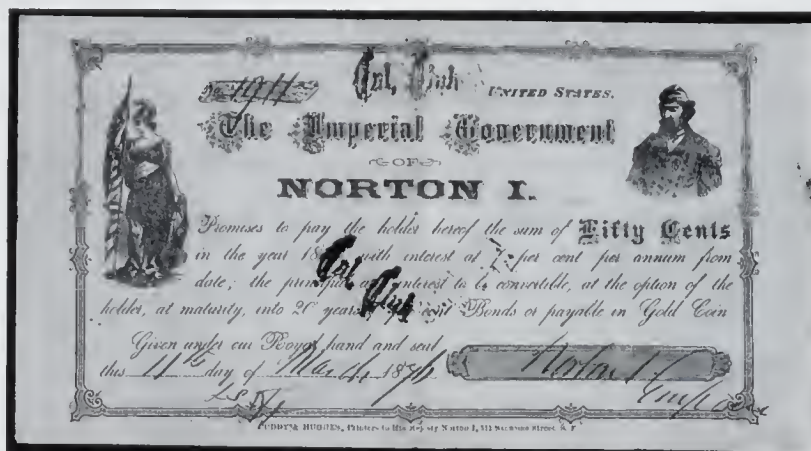 No. 1911
UNITED STATES.
The Imperial Government
OF
NORTON I.
Promises to pay the holder hereof the sum of Fifty Cents
in the year 18 with interest at per cent per annum from
date; the principal and interest to be convertible, at the option of the
holder, at maturity, into 20 years Bonds or payable in Gold Coin
Given under our Royal hand and seal
this 11th day of March 187 Norton I
Emperor
CUDDY & HUGHES, Printers to His Majesty Norton I, 511 Sansome Street, S. F.